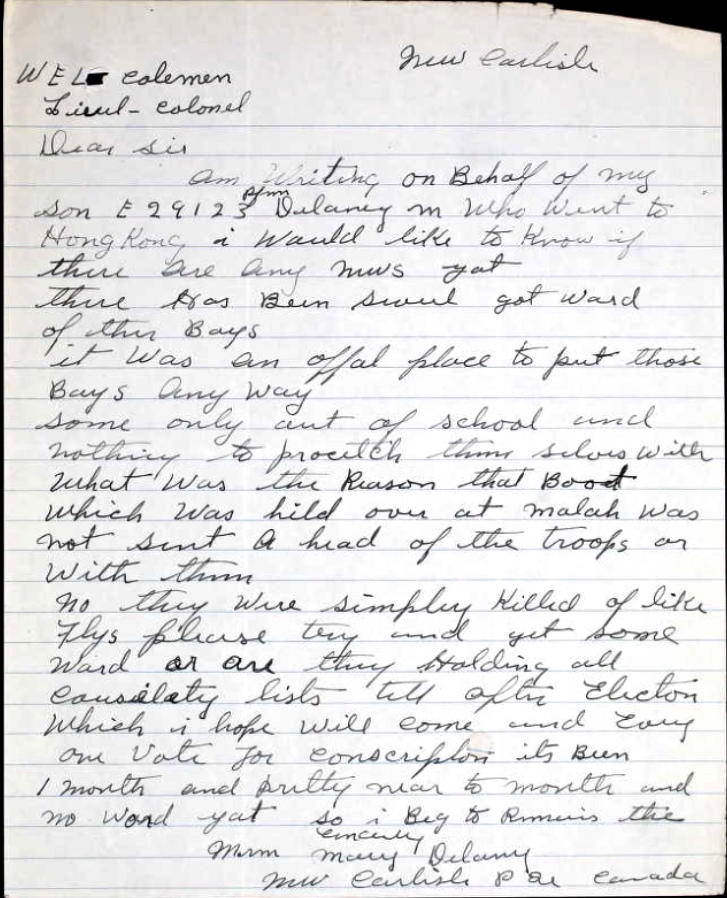 New Carlisle
W E L Colemen
Lieut - Colonel
Dear Sir
am Writing on Behalf of my
son E 29123 Pfmn Delaney m Who Went to
Hong Kong i Would like to Know if
there are any news yat
there Has Been sweel got ward
of ther Bays
it Was an offal place to put those
Bays any way
some only out of school and
nothing to procitch them selves with
What Was the Reason that Boat
which Was hild over at malah was
not sent a head of the troops or
With them
No they Were simpley Killed of like
Flys please try and get some
Ward or are they Holding all
causilaty lists till after Election
Which i hope Will come and Every
one Vote for conscription its Been
1 month and pretty near to month and
no word yat so i Beg to Rimains the
sincerly
Mrm mary Delany
New Carlisle P Qe Canada